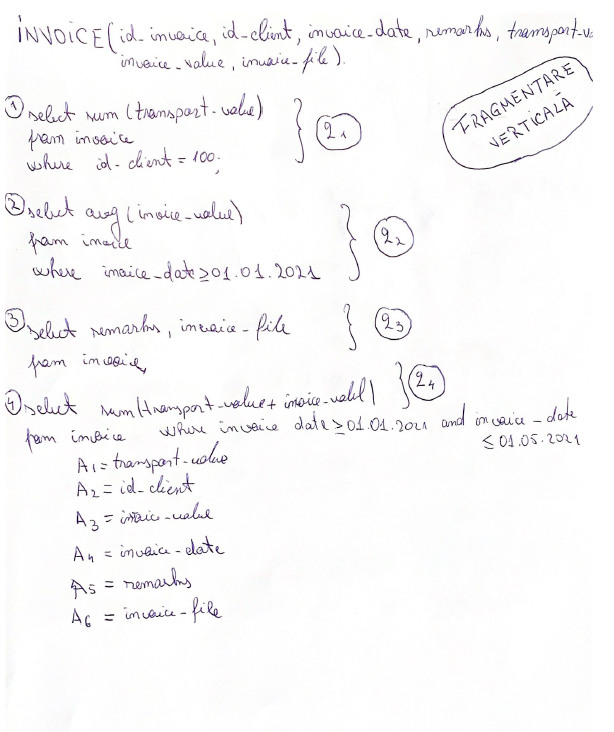 INVOICE(id_invoice, id_client, invoice_date, remarks, transport_v
invoice_value, invoice_file).
FRAGMENTARE
VERTICALĂ
① select sum (transport_value)
from invoice
where id_client = 100;
} q1
② select avg (invoice_value)
from invoice
where invoice_date ≥ 01.01.2021
} q2
③ select remarks, invoice_file
from invoice,
} q3
④ select sum(transport_value + invoice_value) } q4
from invoice where invoice date ≥ 01.01.2021 and invoice_date
≤ 01.05.2021
A1 = transport_value
A2 = id_client
A3 = invoice_value
A4 = invoice_date
A5 = remarks
A6 = invoice_file